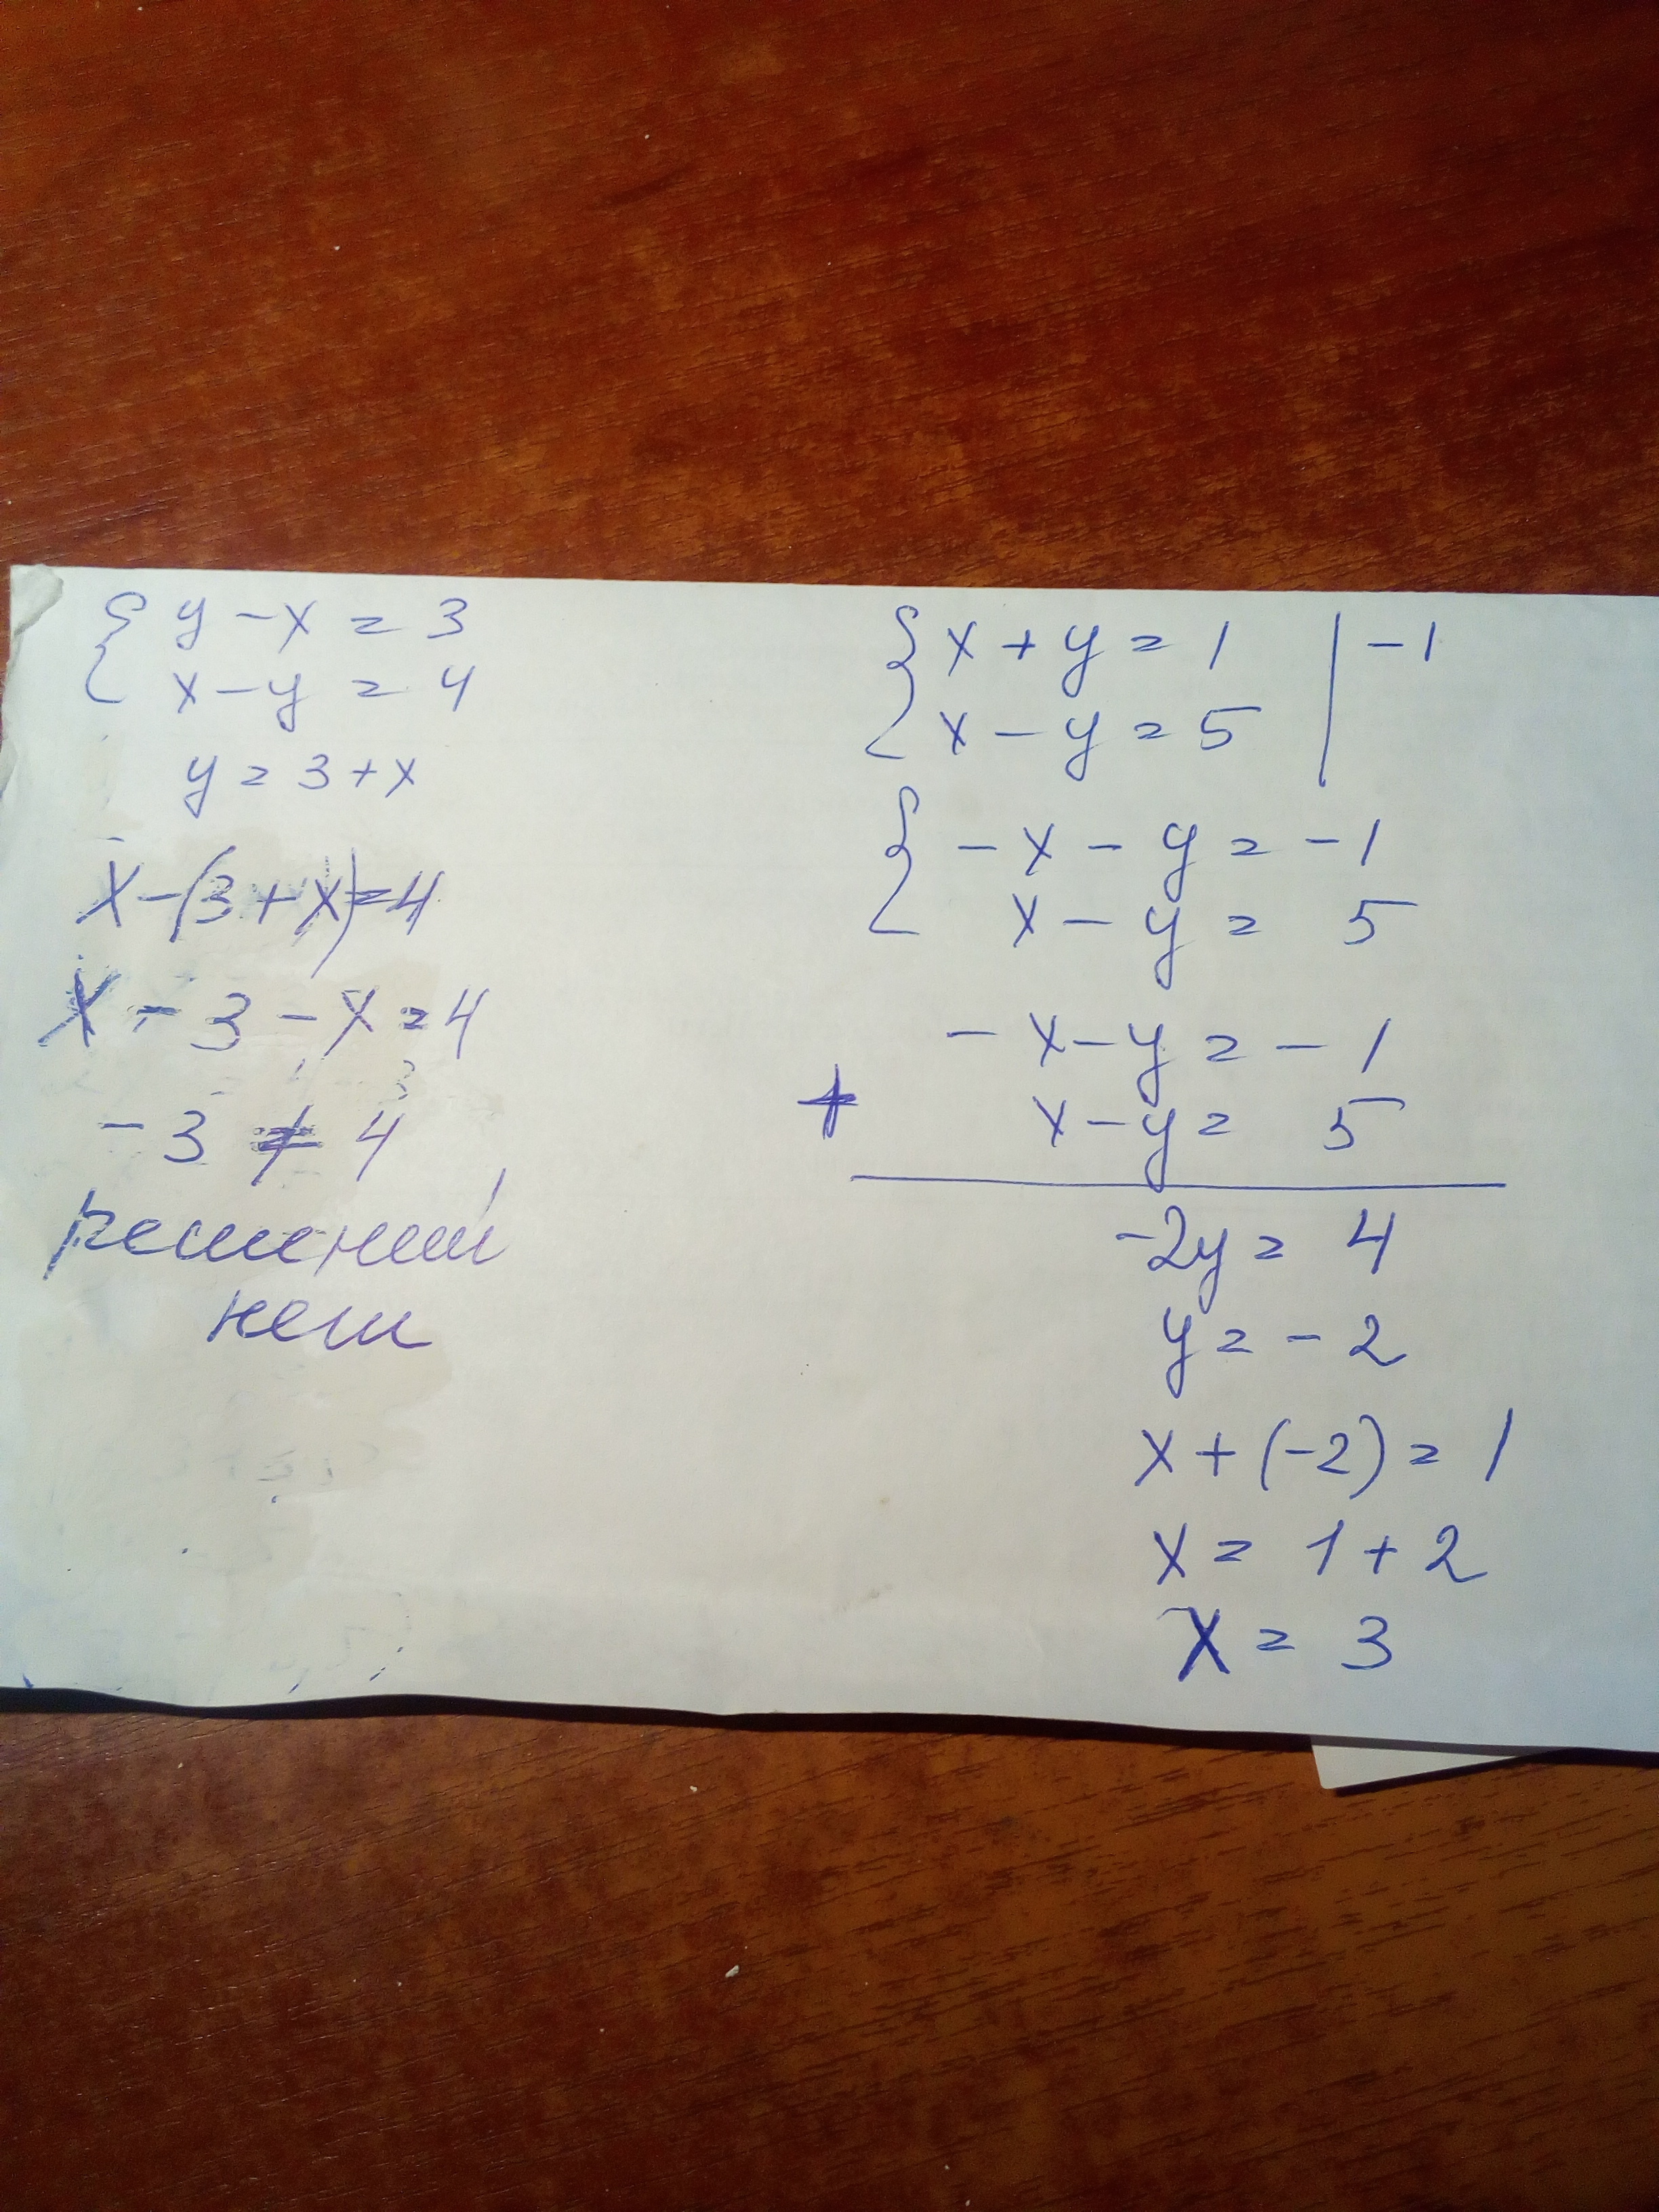 y - x = 3
x - y = 4
y = 3 + x
x - (3 + x) = 4
x - 3 - x = 4
- 3 ≠ 4
решений
нет
x + y = 1 | -1
x - y = 5
- x - y = - 1
x - y = 5
- x - y = - 1
+
x - y = 5
-2y = 4
y = - 2
x + (-2) = 1
x = 1 + 2
x = 3